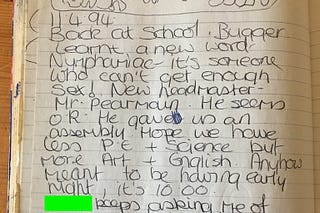 11 4 94
Back at School. Bugger
learnt a new word.
Nymphomaniac - it's someone
who can't get enough
Sex! New headmaster -
Mr. Pearmain. He seems
O.K. He gave us an
assembly. Hope we have
less P.E + Science but
more Art + English. Anyhow
meant to be having early
night, it's 10:00
keeps asking me of